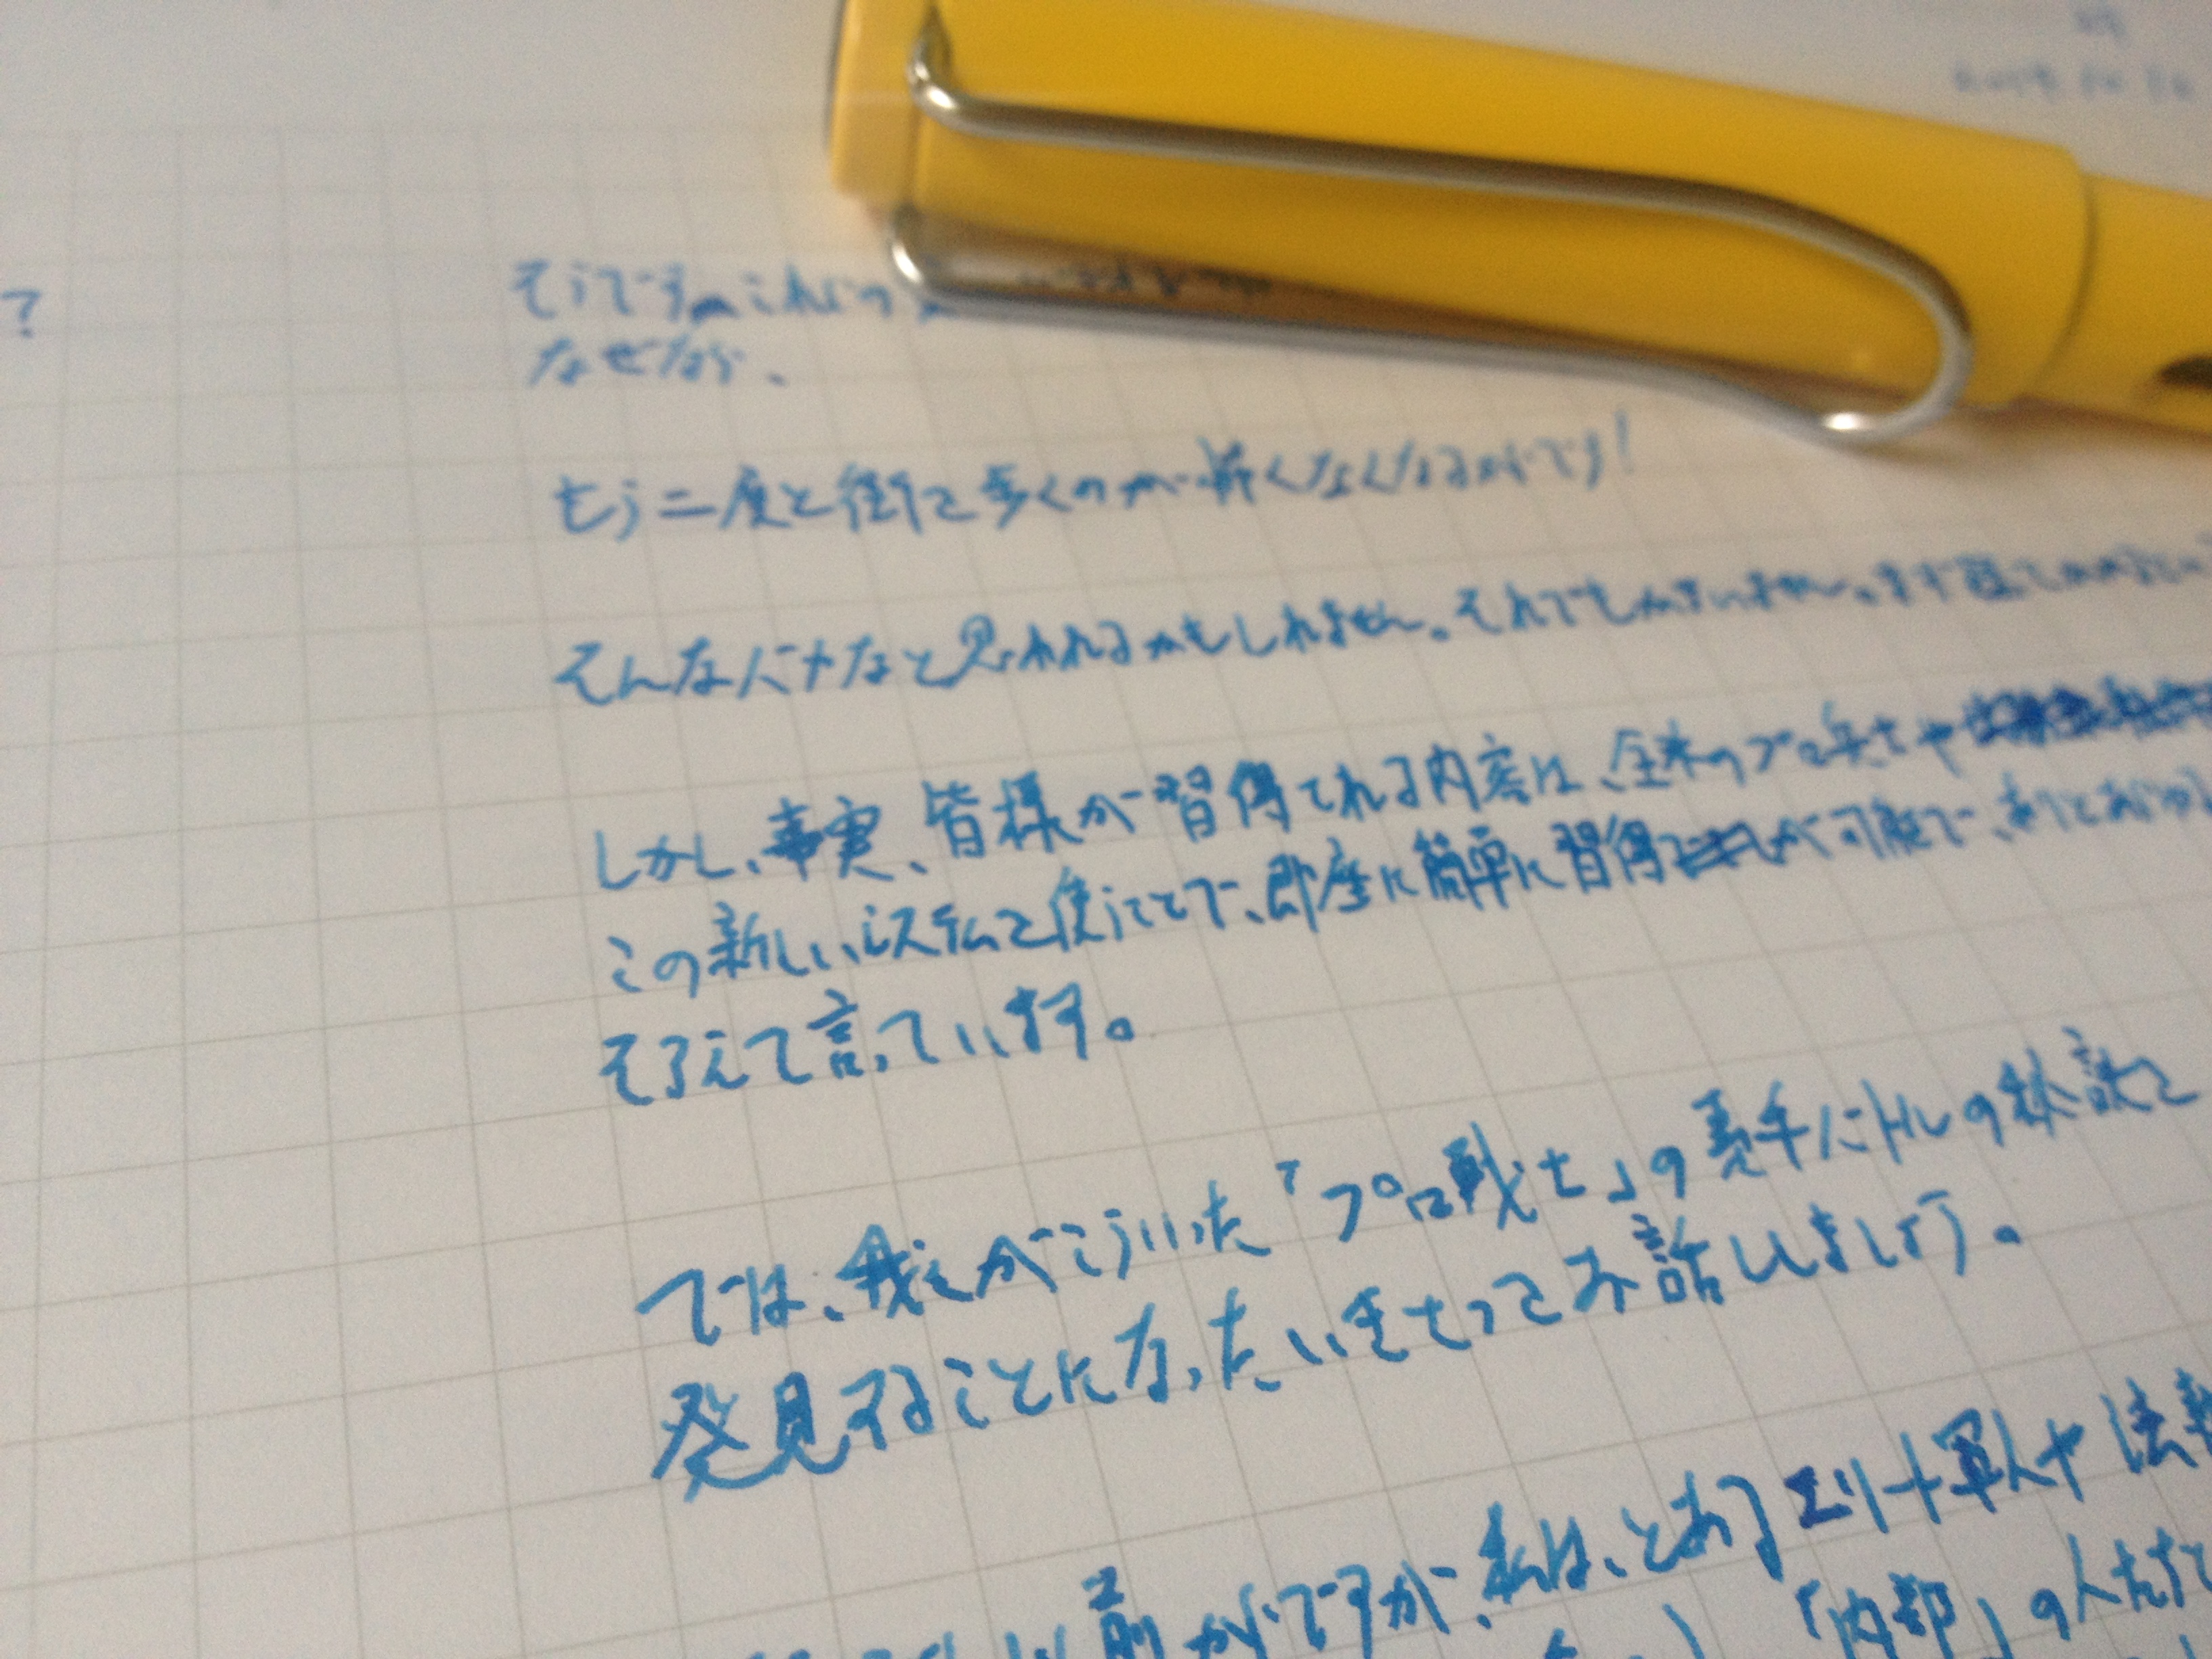 ?
そうです。これらの
なぜなら、
もう二度と街を歩くのが怖くなくなるからです!
そんなバカなと思われるかもしれません。それでもかまいません。まず
しかし、事実、皆様が習得される内容は、全米のプロ兵士や
この新しいシステムを使うことで、即座に簡単に習得が可能で、
そろえて言っています。
では、我々がこういった「プロ戦士」の素手バトルの秘訣を
発見することになったいきさつをお話しいましょう。
前がですが、私は、とあるエリート軍人や法執
「内部」の人たちと